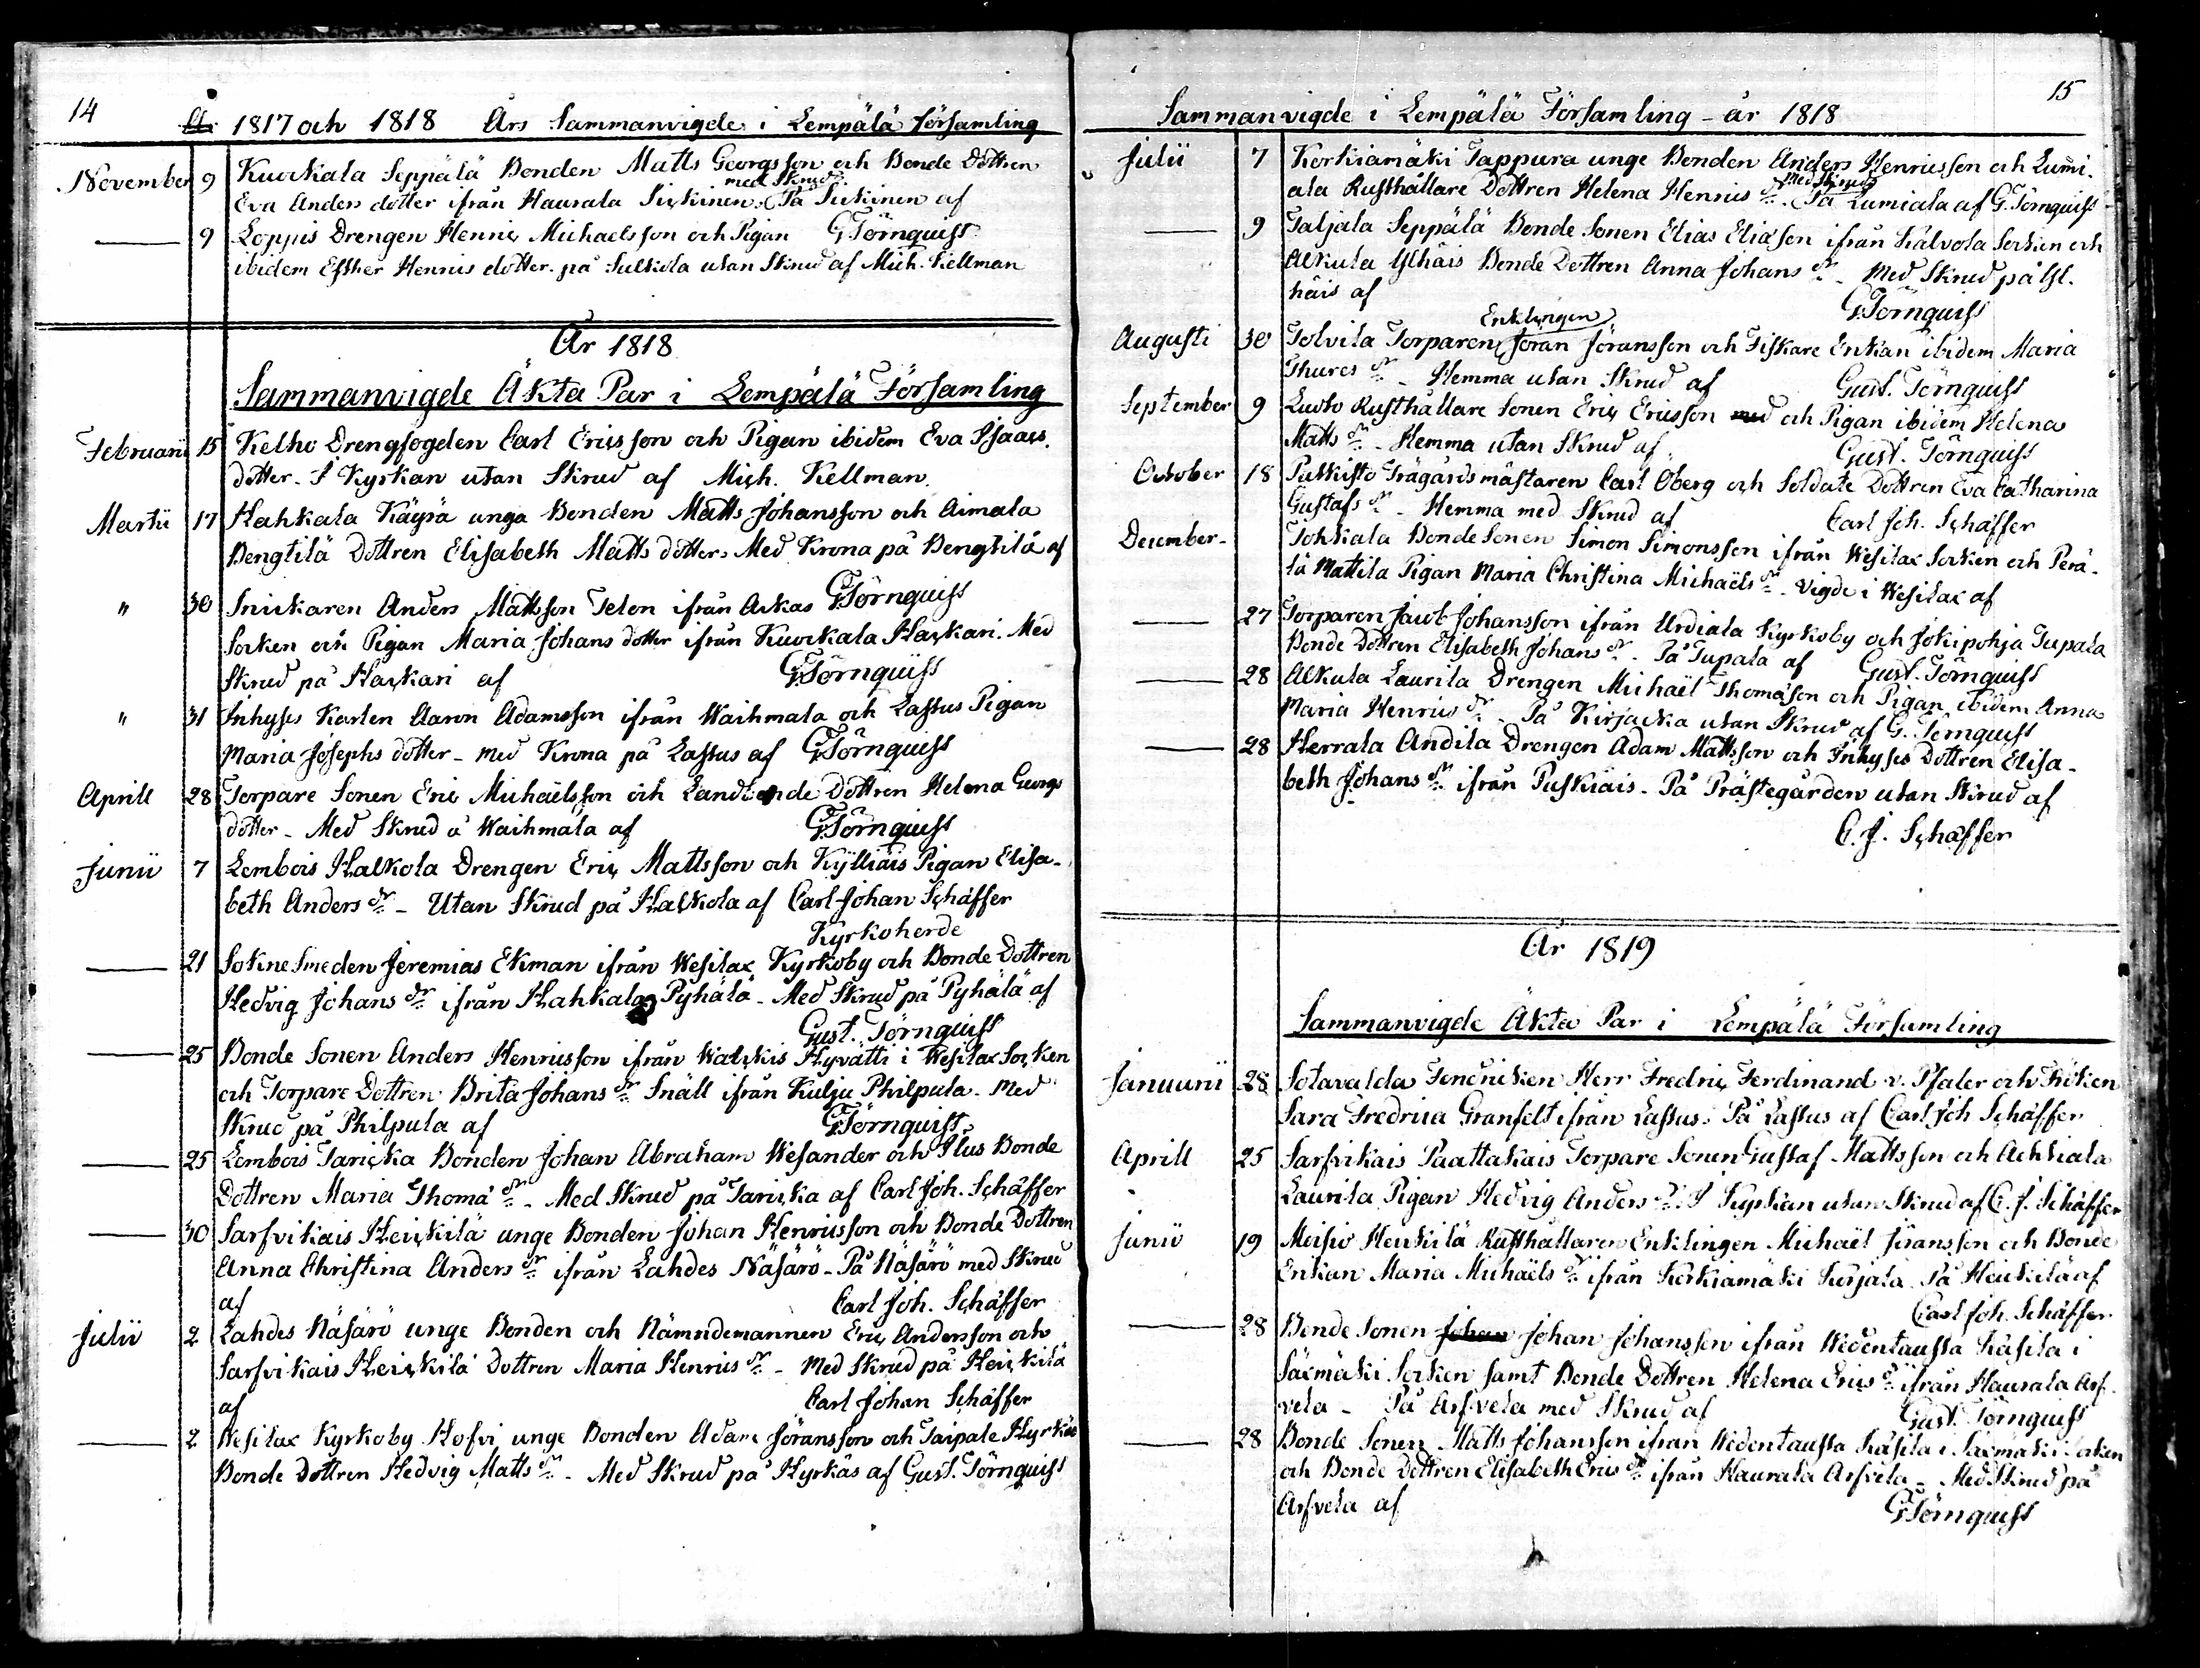 14
År 1817 och 1818 Års Sammanvigde i Lempälä Församling
November 9 Kuockala Seppälä Bonden Matts Georgsson och Bonde Dottren
med Skrud
Eva Anders dotter ifrån Haurala Sickinen. På Sickinen af
G Törnquist
9 Loppis Drengen Henric Michaelsson och Pigan
ibidem Esther Henrics dotter. på Sulkola utan Skrud af Mich. Kellman
År 1818
Sammanvigde Äkta Par i Lempälä Församling
Februarii 15 Kelho Drengfogden Carl Ericsson och Pigan ibidem Eva Isaacs
dotter. I Kyrkan utan Skrud af Mich. Kellman.
Martii 17 Hahkala Käyrä unga Bonden Matts Johansson och Aimala
Bengtilä Dottren Elisabeth Matts dotter. Med Krona på Bengtilä af
G Törnquist
" 30 Snickaren Anders Mattsson Telen ifrån Ackas
Socken och Pigan Maria Johans dotter ifrån Kuockala Hackari. Med
Skrud på Hackari af G Törnquist
" 31 Inhyses Karlen Aaron Adamsson ifrån Waihmala och Lastus Pigan
Maria Josephs dotter - med Krona på Lastus af G Törnquist
Aprill 28 Torpare Sonen Eric Michaëlsson och Landbonde Dottren Helena Georgs
dotter - Med Skrud å Waihmala af G Törnquist
Junii 7 Lembois Halkola Drengen Eric Mattsson och Kylliäis Pigan Elisa-
beth Anders dr - Utan Skrud på Halkola af Carl Johan Schäffer
Kyrkoherde
21 Sokne Smeden Jeremias Ekman ifrån Wesilax Kyrkoby och Bonde Dottren
Hedvig Johans dr ifrån Hahkala Pyhälä - Med Skrud på Pyhälä af
Gust. Törnquist
25 Bonde Sonen Anders Henricsson ifrån Walckis Hyvätti i Wesilax Socken
och Torpare Dottren Brita Johans dr Snäll ifrån Kulju Philpula. Med
Skrud på Philpula af G Törnquist
25 Lembois Taricka Bonden Johan Abraham Wesander och Plus Bonde
Dottren Maria Thoma dr - Med Skrud på Taricka af Carl Joh. Schäffer
30 Sarfvikais Heickilä unge Bonden Johan Henricsson och Bonde Dottren
Anna Christina Anders dr ifrån Lahdes Näsärö - På Näsärö med Skrud
af Carl Joh. Schäffer
Julii 2 Lahdes Näsärö unge Bonden och Nämndemannen Eric Andersson och
Sarfvikais Heickilä Dottren Maria Henrics dr - Med Skrud på Heickilä
af Carl Johan Schäffer
2 Wesilax Kyrkoby Hofvi unge Bonden Adam Jöransson och Taipale Hyrkäs
Bonde Dottren Hedvig Matts dr - Med Skrud på Hyrkäs af Gust. Törnquist
15
Sammanvigde i Lempälä Församling - år 1818
Julii 7 Korkiamäki Tappura unge Bonden Anders Henricsson och Lumi-
Med Skrud
ala Rusthållare Dottren Helena Henrics dr. På Lumiala af G. Törnquist
9 Taljala Seppälä Bonde Sonen Elias Eliason ifrån Kalvola Socken och
Alkula Ylhäis Bonde Dottren Anna Johans dr - Med Skrud på Yl-
häis af G Törnquist
Enklingen
Augusti 30 Tolvila Torparen Jöran Jöransson och Fiskare Enkan ibidem Maria
Thures dr - Hemma utan Skrud af Gust. Törnquist
September 9 Luoto Rusthållare Sonen Eric Ericsson med och Pigan ibidem Helena
Matts dr - Hemma utan Skrud af Gust. Törnquist
October 18 Pulkisto Trägårdsmästaren Carl Oberg och Soldate Dottren Eva Catharina
Gustafs dr - Hemma med Skrud af Carl Joh. Schäffer
December - Tohkala Bonde Sonen Simon Simonsson ifrån Wesilax Socken och Perä-
lä Mattila Pigan Maria Christina Michaëls dr - Vigde i Wesilax af
27 Torparen Jacob Johansson ifrån Urdiala Kyrkoby och Jokipohja Tupala
Bonde Dottren Elisabeth Johans dr - På Tupala af Gust. Törnquist
28 Alkula Laurila Drengen Michaël Thomason och Pigan ibidem Anna
Maria Henrics dr - På Kirjacka utan Skrud af G. Törnquist
28 Herrala Andila Drengen Adam Mattsson och Inhyses Dottren Elisa-
beth Johans dr ifrån Puskiais - På Prästegården utan Skrud af
C. J. Schäffer
År 1819
Sammanvigde Äkta Par i Lempälä Församling
Januarii 28 Sotavalda Fendricken Herr Fredric Ferdinand v. Pfaler och Fröken
Sara Fredrica Granfelt ifrån Lastus. På Lastus af Carl Joh Schäffer
Aprill 25 Sarfvikais Paattakais Torpare Sonen Gustaf Mattsson och Achtiala
Laurila Pigan Hedvig Anders dr. I Kyrkan utan Skrud af C. J. Schäffer
Junii 19 Moisio Heickilä Rusthållaren Enklingen Michaël Jöransson och Bonde
Enkan Maria Michaëls dr ifrån Korkiamäki Kurjala På Heickilä af
Carl Joh. Schäffer
28 Bonde Sonen Johan Johan Johansson ifrån Wedentausta Käsila i
Säxmäki Socken samt Bonde Dottren Helena Erics dr ifrån Haurala Arf-
vela - På Arfvela med Skrud af Gust. Törnquist
28 Bonde Sonen Matts Johansson ifrån Wedentausta Käsila i Säxmäki Socken
och Bonde Dottren Elisabeth Erics dr ifrån Haurala Arfvela - Med Skrud på
Arfvela af G Törnquist